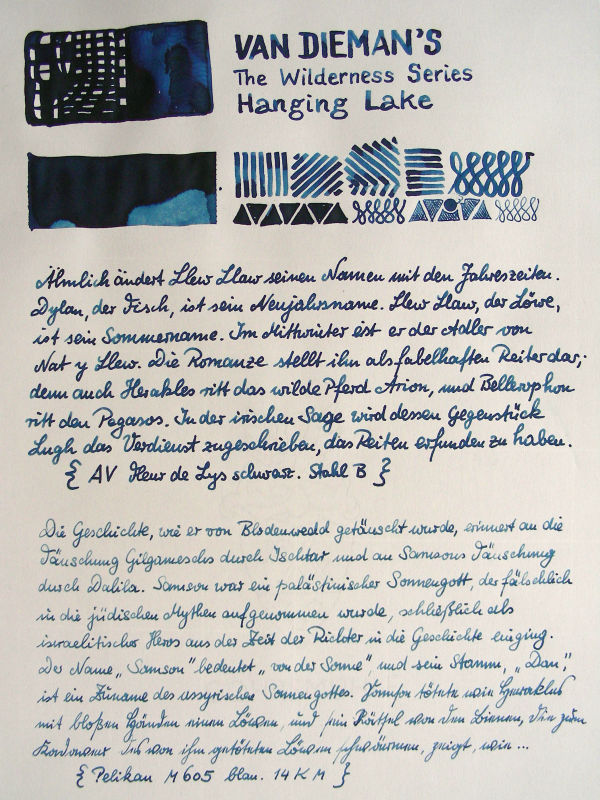 VAN DIEMAN'S
The Wilderness Series
Hanging Lake
Ähnlich ändert Llew Llaw seinen Namen mit den Jahreszeiten.
Dylan, der Fisch, ist sein Neujahrsname. Llew Llaw, der Löwe,
ist sein Sommername. Im Mittwinter ist er der Adler von
Nat y Llew. Die Romanze stellt ihn als fabelhaften Reiter dar;
denn auch Herakles ritt das wilde Pferd Arion, und Bellerophon
ritt den Pegasos. In der irischen Sage wird dessen Gegenstück
Lugh das Verdienst zugeschrieben, das Reiten erfunden zu haben.
{ AV Fleur de Lys schwarz. Stahl B }
Die Geschichte, wie er von Blodeuwedd getäuscht wurde, erinnert an die
Täuschung Gilgameschs durch Ischtar und an Samsons Täuschung
durch Dalila. Samson war ein palästinischer Sonnengott, der fälschlich
in die jüdischen Mythen aufgenommen wurde, schließlich als
israelitischer Heros aus der Zeit der Richter in die Geschichte einging.
Der Name „Samson" bedeutet „von der Sonne" und sein Stamm, „Dan",
ist ein Zuname des assyrischen Sonnengottes. Samson tötete wie Herakles
mit bloßen Händen einen Löwen, und sein Rätsel von den Bienen, die zum
Kadaver des von ihm getöteten Löwen schwärmen, zeigt, wie ...
{ Pelikan M605 blau. 14 K M }